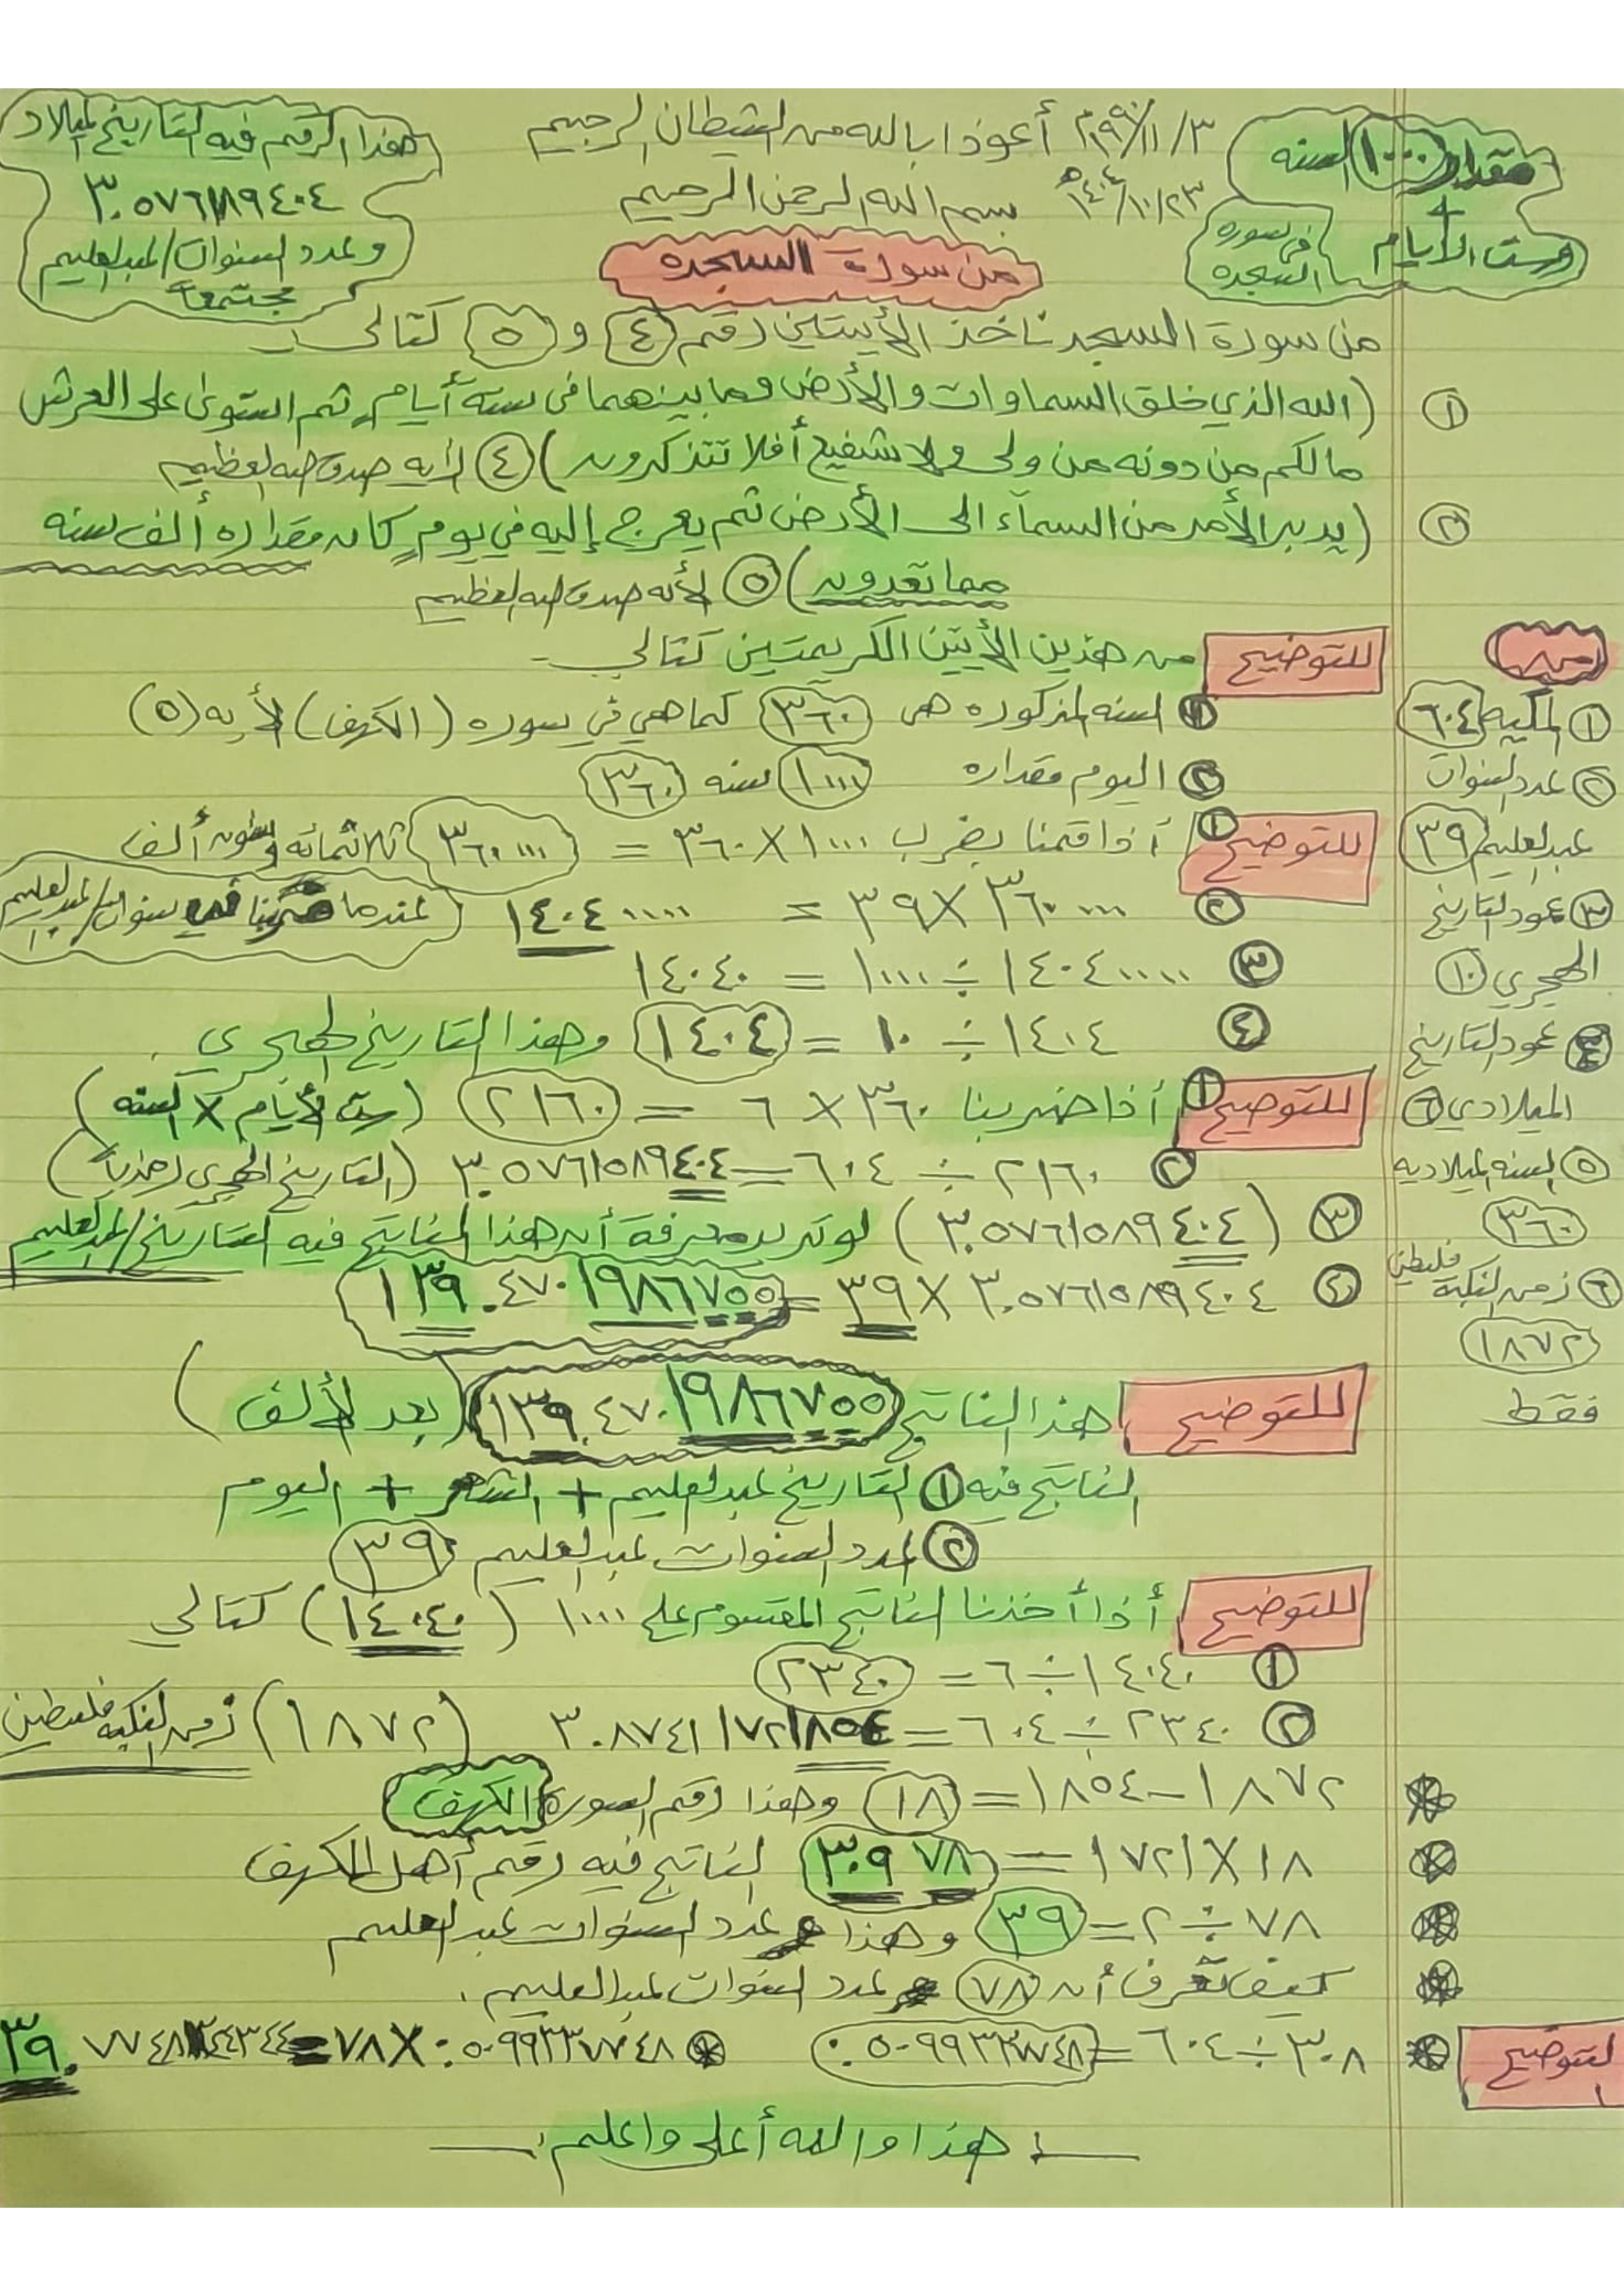 مقدار ١٠٠٠ السنه
+
وست الأيام
في سوره السجده
أعوذ بالله من الشيطان الرجيم
١٤٠٤/١٠/٢٣ هـ
بسم الله الرحمن الرحيم
هذا الرقم فيه التاريخ لميلاد
وعدد السنوات/عبدالعليم
مجتمعة
من سورة السجده
من سورة السجد ناخذ الأيتين رقم (٤) و (٥) كتالي
١ (الله الذي خلق السماوات والأرض وما بينهما في ستة أيام ثم استوى على العرش
مالكم من دونه من ولى ولا شفيع أفلا تتذكرون) ٤ لأيه صدق الله العظيم
٢ (يدبر الأمر من السمآء الى الأرض ثم يعرج إليه في يوم كان مقداره ألف سنه
مما تعدون) ٥ لأيه صدق الله العظيم
للتوضيح من هذين الأيتين الكريمتين كتالي
١ السنه المذكوره هى ٣٦٠ كما هي في سوره (الكهف) لأيه (٥)
٢ اليوم مقداره ١٠٠٠ سنه ٣٦٠
للتوضيح ١ أذا قمنا بضرب ١٠٠٠ × ٣٦٠ = ٣٦٠٠٠٠ ثلاثمائه وستون ألف
٢ ٣٦٠٠٠٠ × ٣٩ = ١٤٠٤٠٠٠٠ (عندما ضربنا في سنوات/عبدالعليم
٣ ١٤٠٤٠٠٠٠ ÷ ١٠٠٠ = ١٤٠٤٠
٤ ١٤٠٤ ÷ ١٠ = ١٤٠٤ وهذا التاريخ الهجري
للتوضيح ١ أذا ضربنا ٣٦٠ × ٦ = ٢١٦٠ (ست الأيام × السنه)
٢ ٢١٦٠ ÷ ٦٠٤ = ٣.٥٧٦١٥٨٩٤٠٤ (التاريخ الهجري رمزياً)
٣ (٣.٥٧٦١٥٨٩٤٠٤) لو تريد معرفة أن هذا الناتج فيه التاريخ/عبدالعليم
٤ ٣.٥٧٦١٥٨٩٤٠٤ × ٣٩ = ١٣٩.٤٧٠١٩٨٦٧٥٥
للتوضيح هذا الناتج ١٣٩.٤٧٠١٩٨٦٧٥٥ (بعد الألف)
الناتج فيه ١ التاريخ عبدالعليم + الشهر + اليوم
٢ عدد السنوات عبدالعليم ٣٩
للتوضيح أذا أخذنا الناتج المقسوم على ١٠٠٠ (١٤٠٤٠) كتالي
١ ١٤٠٤٠ ÷ ٦ = ٢٣٤٠
٢ ٢٣٤٠ ÷ ٦٠٤ = ٣.٨٧٤١٧٢١٨٥٤ (١٨٧٢) زمن النكبه فلسطين
١٨٧٢ - ١٨٥٤ = ١٨ وهذا رقم السورة الكهف
١٨ × ١٧٢١ = ٣٠٩٧٨ الناتج فيه رقم أهل الكهف
٧٨ ÷ ٢ = ٣٩ وهذا عدد السنوات عبدالعليم
كيف تعرف أن ٧٨ عدد السنوات عبدالعليم
للتوضيح ٣٠٨ ÷ ٦٠٤ = ٠.٥٠٩٩٣٣٧٧٤٨
٠.٥٠٩٩٣٣٧٧٤٨ × ٧٨ = ٣٩.٧٧٤٨٣٤٤٣٤٤
هذا والله أعلى واعلم
من
١ المكيه ٦٠٤
٢ عدد السنوات
عبدالعليم ٣٩
٣ عمود التاريخ
الهجري ١٠
٤ عمود التاريخ
الميلادي ٦
٥ السنه الميلاديه
٣٦٠
٦ زمن النكبة فلسطين
١٨٧٢
فقط